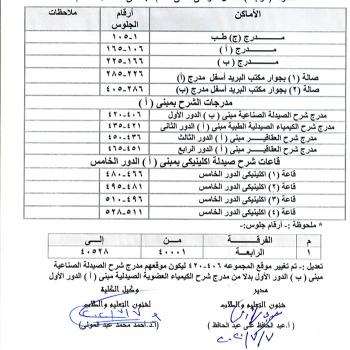 الأماكن | أرقام الجلوس | ملاحظات
مدرج (ج) طب | ١-١٠٥
مدرج ( أ ) | ١٠٦-١٦٥
مدرج ( ب ) | ١٦٦-٢٢٥
صالة (١) بجوار مكتب البريد أسفل مدرج (أ) | ٢٢٦-٢٨٥
صالة (٢) بجوار مكتب البريد أسفل مدرج (أ) | ٢٨٦-٤٠٥
مدرجات الشرح بمبنى ( أ )
مدرج شرح الصيدلة الصناعية مبنى ( ب ) الدور الأول | ٤٠٦-٤٢٠
مدرج شرح الكيمياء الصيدلية الطبية مبنى ( أ ) الدور الثانى | ٤٢١-٤٣٥
مدرج شرح العقاقير مبنى ( أ ) الدور الثالث | ٤٣٦-٤٥٠
مدرج شرح العقاقير مبنى ( أ ) الدور الرابع | ٤٥١-٤٦٥
قاعات شرح صيدلة اكلينيكى بمبنى ( أ ) الدور الخامس
قاعة (١) اكلينيكى الدور الخامس | ٤٦٦-٤٨٠
قاعة (٢) اكلينيكى الدور الخامس | ٤٨١-٤٩٥
قاعة (٣) اكلينيكى الدور الخامس | ٤٩٦-٥١٠
قاعة (٤) اكلينيكى الدور الخامس | ٥١١-٥٢٨
* ملحوظة :- أرقام جلوس:-
م | الفرقة | من | إلى
١ | الرابعة | ٤٠٠٠١ | ٤٠٥٢٨
تعديل :- تم تغيير موقع المجموعه ٤٠٦-٤٢٠ ليكون موقعهم مدرج شرح الصيدلة الصناعية
مبنى ( ب ) الدور الأول بدلا من مدرج شرح الكيمياء العضوية الصيدلية مبنى ( أ ) الدور الأول
مدير | وكيل الكلية
شئون التعليم والطلاب | لشئون التعليم والطلاب
أ.عبد الحافظ على عبد الحافظ | أ.د/احمد محمد عبد المولى